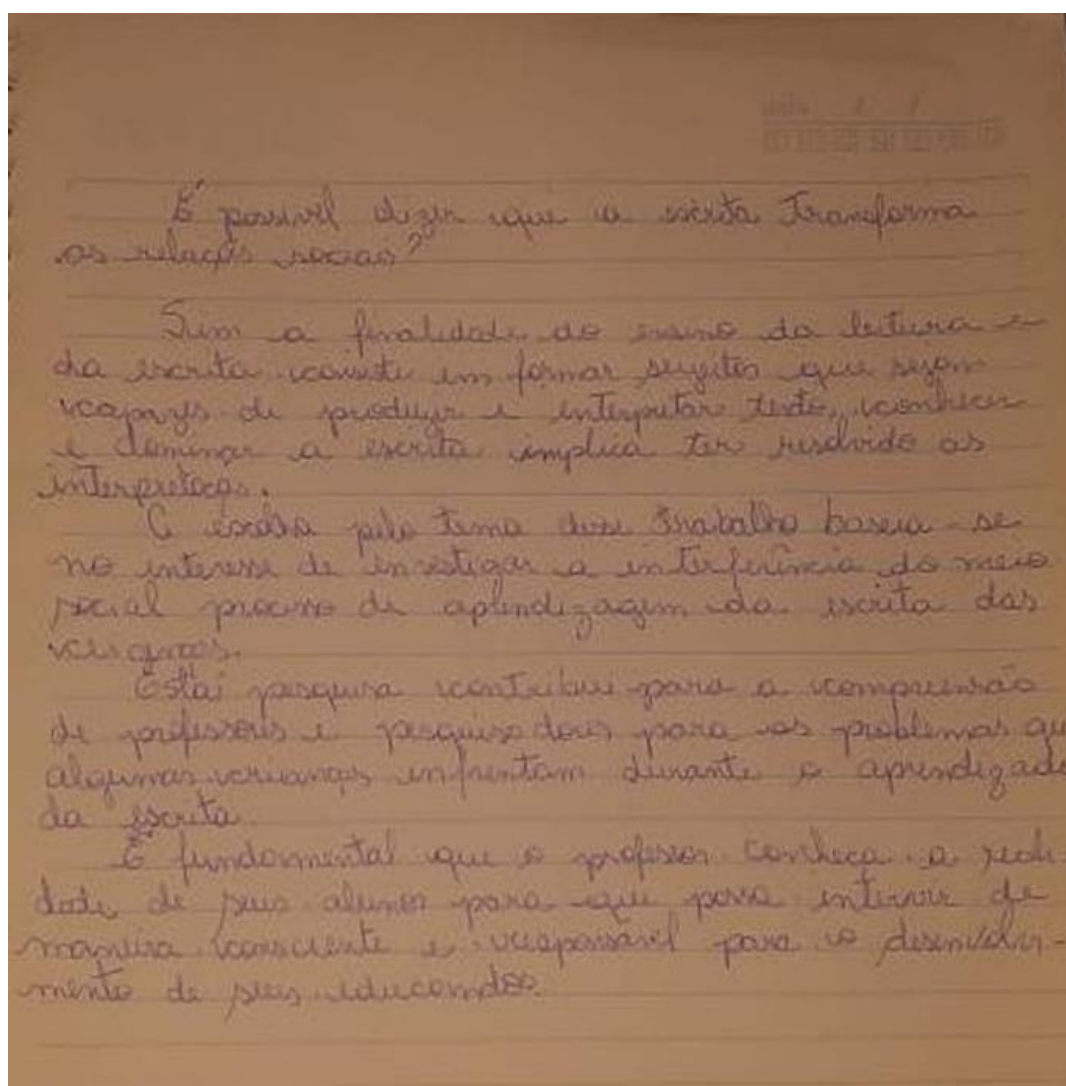 É possível dizer que a escrita Transforma
as relaçõs sociais?
Sim a finalidade do ensino da leitura e
da escrita consiste em formar sujeitos que sejam
capazes de produzir e interpretar texto, conhecer
e dominar a escrita implica ter resolvido as
interpretaçõs.
A escolha pelo tema desse trabalho baseia-se
no interesse de investigar a interferência do meio
social processo de aplendizagem da escrita das
crianças.
Estái pesquisa contribui para a compreensão
de professores e pesquisadores para os problemas que
algumas crianças enfrentam durante o aprendizado
da escrita.
É fundamental que o professor conheça a reali-
dade de seus alunos para que possa intervir de
maneira consciente e responsavel para o desenvolvi-
mento de seus educandos.